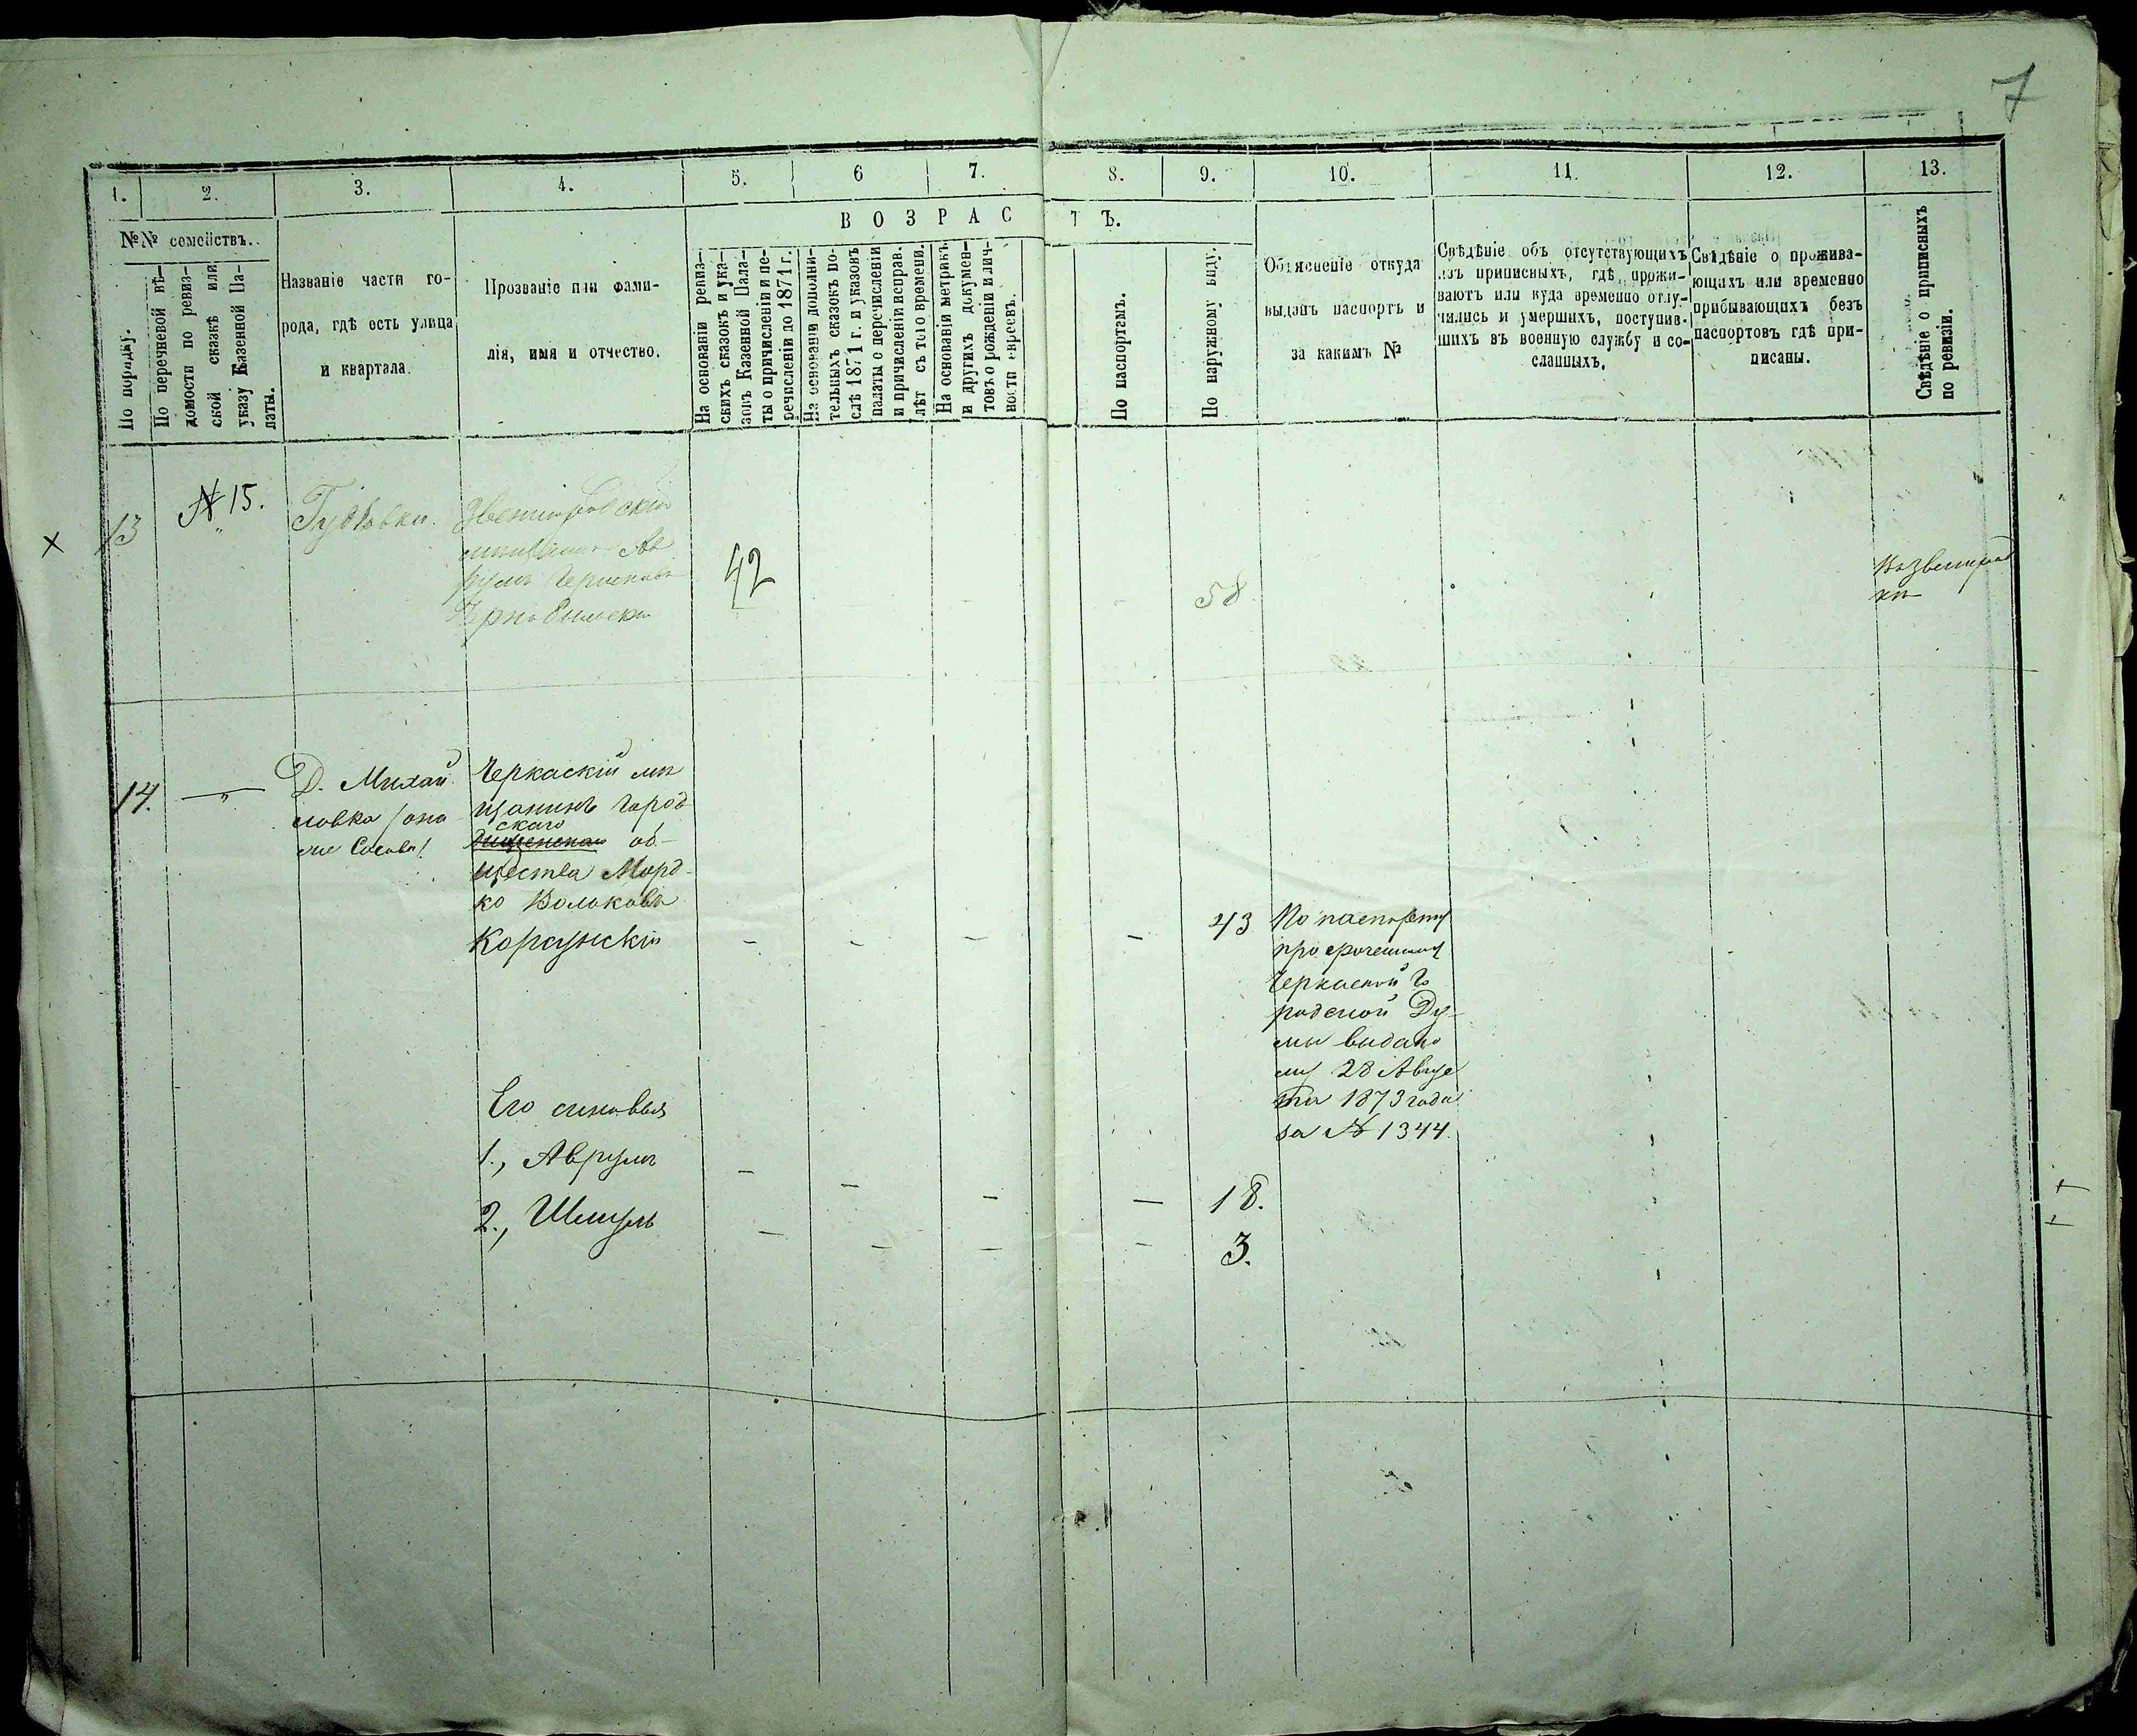 7
1. 2. 3. 4. 5. 6 7. 8. 9. 10. 11. 12. 13.
№№ семействъ.
По порядку.
По перечневой вѣ-
домости по ревиз-
ской сказкѣ или
указу Казенной Па-
латы.
Названіе части го-
рода, гдѣ есть улица
и квартала.
Прозваніе или фами-
лія, имя и отчество.
ВОЗРАСТЪ.
На основаніи ревиз-
скихъ сказокъ и ука-
зовъ Казенной Пала-
ты о причисленіи и пе-
речисленіи до 1871 г.
На основаніи дополни-
тельныхъ сказокъ по-
слѣ 1871 г. и указовъ
палаты о перечисленіи
и причисленіи исправ.
лѣт съ того времени.
На основаніи метрикъ
и другихъ докумен-
товъ о рожденіи и лич-
ности евреевъ.
По паспортамъ.
По наружному виду.
Объясненіе откуда
выданъ паспортъ и
за какимъ №
Свѣдѣніе объ отсутствующихъ
изъ приписныхъ, гдѣ прожи-
ваютъ или куда временно отлу-
чились и умершихъ, поступив-
шихъ въ военную службу и со-
сланныхъ.
Свѣдѣніе о прожива-
ющихъ или временно
прибывающихъ безъ
паспортовъ гдѣ при-
писаны.
Свѣдѣніе о приписныхъ
по ревизіи.
х 13 № 15. Гудзовки. Звенигородскій
Ав
румъ
42
58
14. — Д. Михай
ловка /она
же
Черкаскій мѣ
щанинъ город
скаго
об-
щества Морд-
ко Вольковъ
Корсунскій
— — — — 43
По паспорту
просроченному
Черкаской Го
родской Ду-
мы выдано
му 28 Авгус
та 1873 года
за № 1344.
Его сыновья
1., Аврумъ — — — — 18.
2., Шмуль — — — — 3.